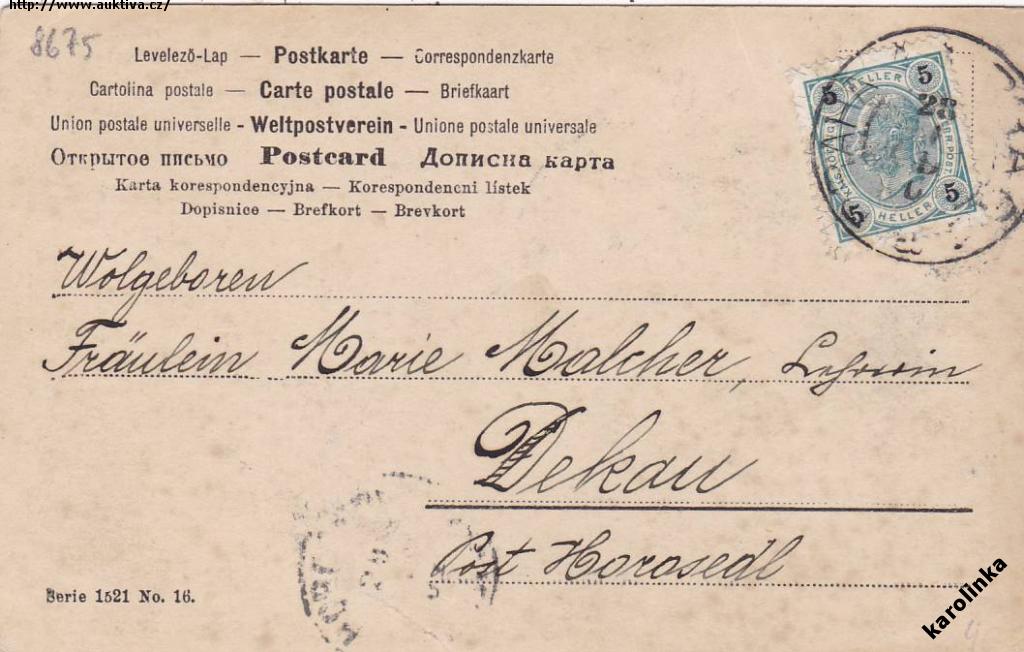 http://www.auktiva.cz/
8675
Levelező-Lap — Postkarte — Correspondenzkarte
Cartolina postale — Carte postale — Briefkaart
Union postale universelle - Weltpostverein - Unione postale universale
Открытое письмо Postcard Дописна карта
Karta korespondencyjna — Korespondencni lístek
Dopisnice — Brefkort — Brevkort
5 HELLER 5
5 HELLER 5
28
Wolgeboren
Fräulein Marie Malcher, Lehrerin
Dekau
Post Horosedl
Serie 1521 No. 16.
karolinka